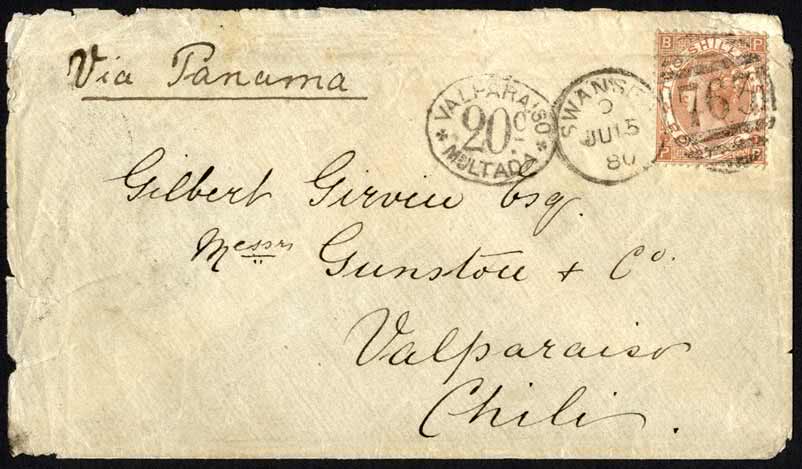 Via Panama
VALPARAISO
20 c
* MULTADA *
SWANSE
JU 15
80
B P
SHILL
763
P
Gilbert Girvin Esq.
Messrs Gunston & Co.
Valparaiso
Chili.